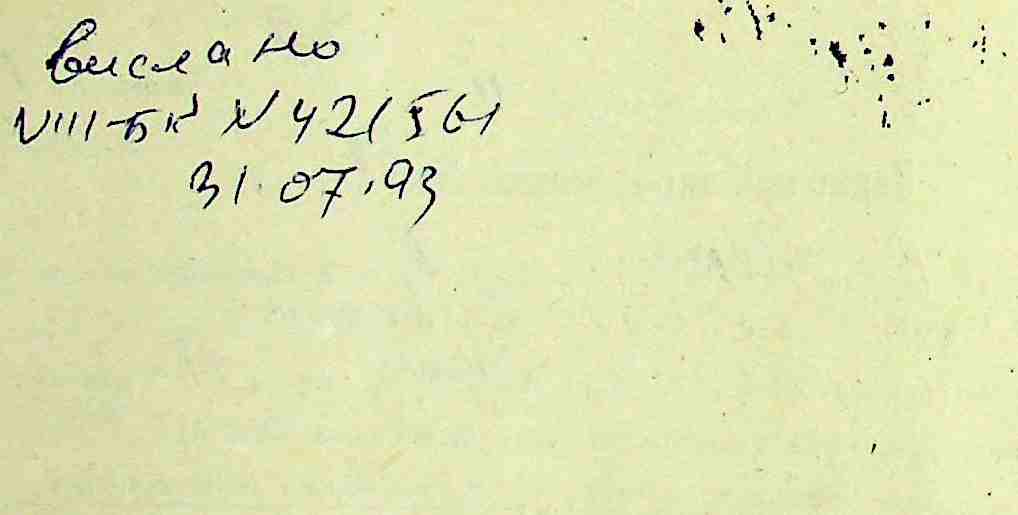 вислано
VIII-БК N 421561
31.07.93